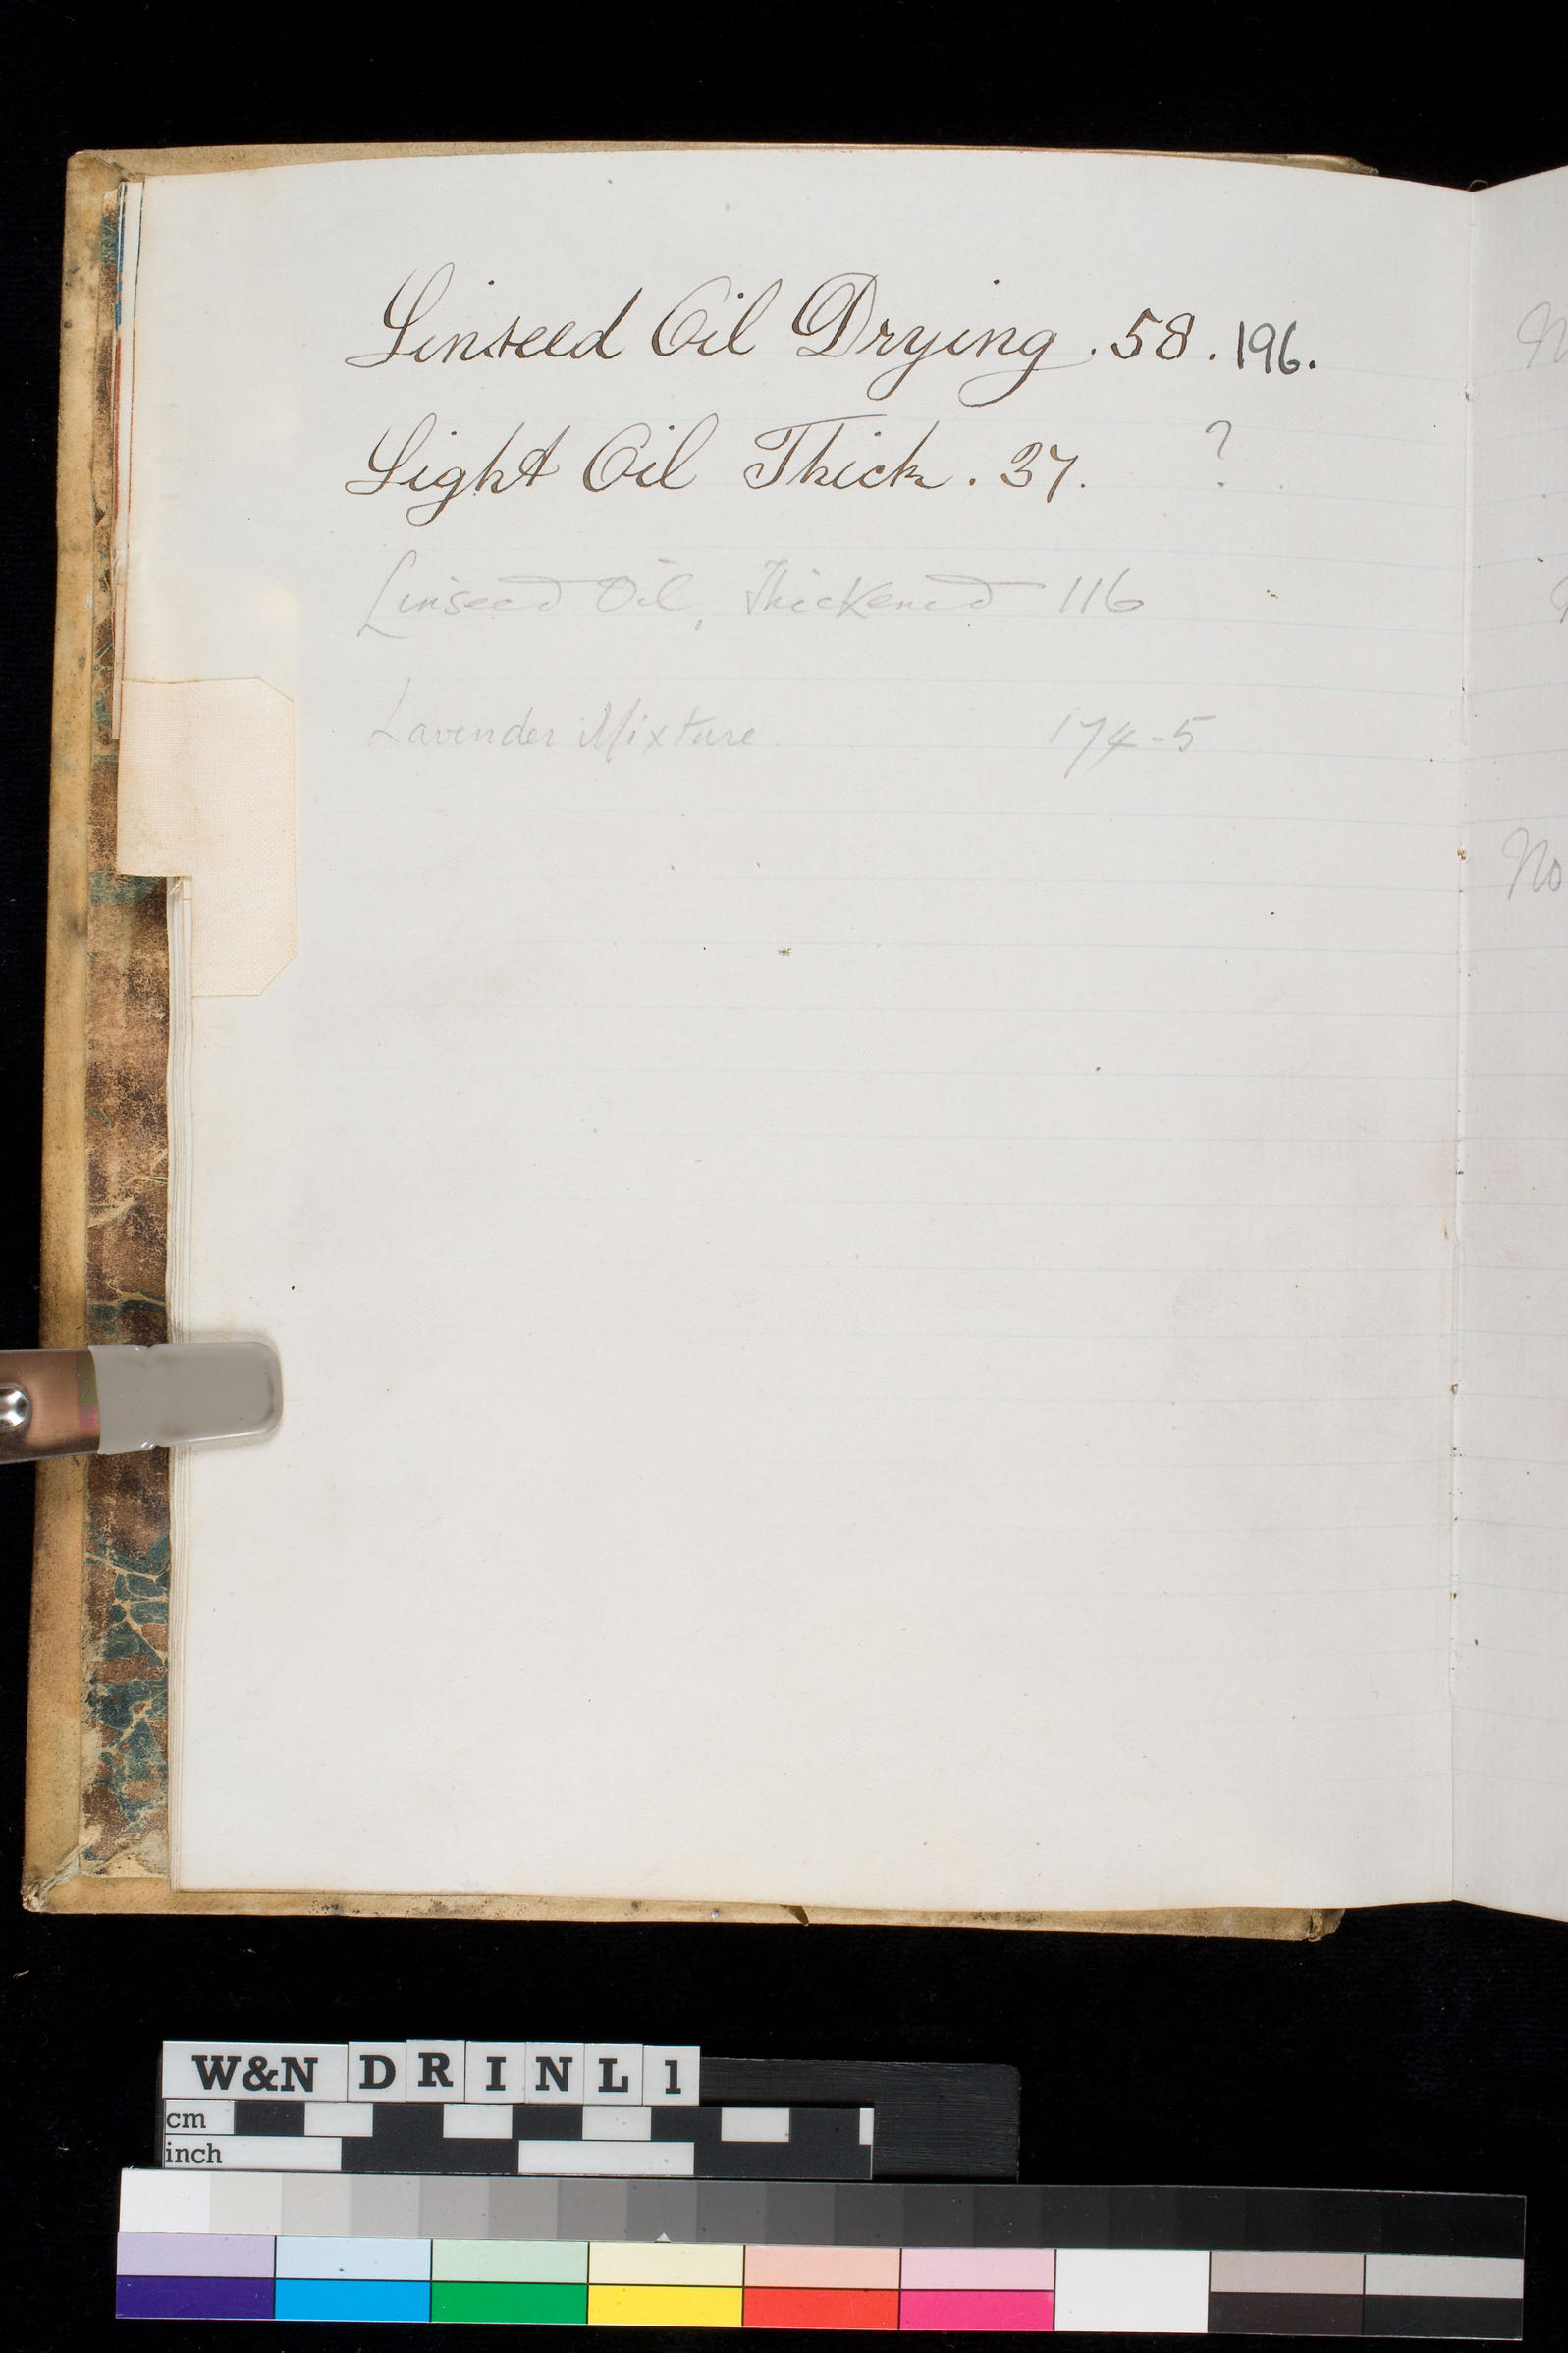 Linseed Oil Drying . 58 . 196.
Light Oil Thick . 37. ?
Linseed Oil, Thickened 116
Lavender Mixture 174-5
No
W&N DRINL1
cm
inch